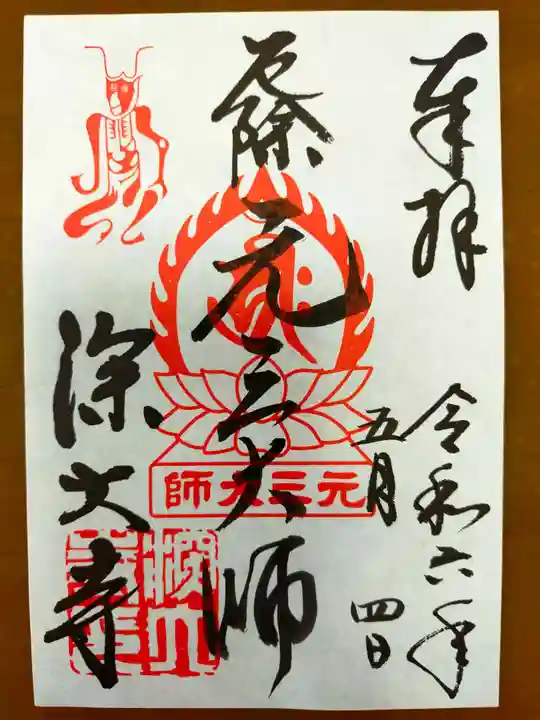 奉拝
令和六年
五月
四日
厄除元三大師
元三大師
深大寺